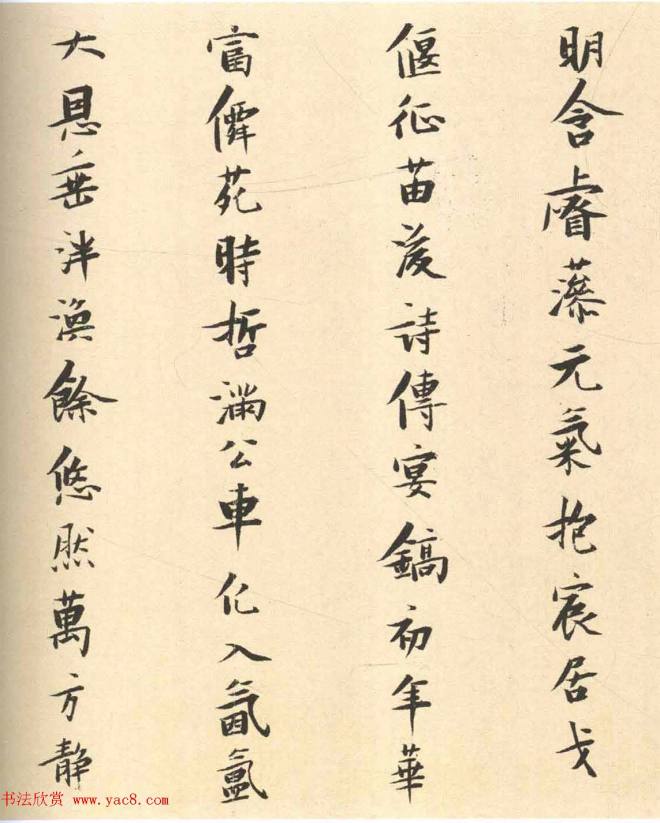 明含睿藻元氣抱宸居戈
偃征苗後詩傳宴鎬初年華
富僊苑時哲滿公車化入氤氳
大恩垂泮渙餘悠然萬方靜
书法欣赏 www.yac8.com